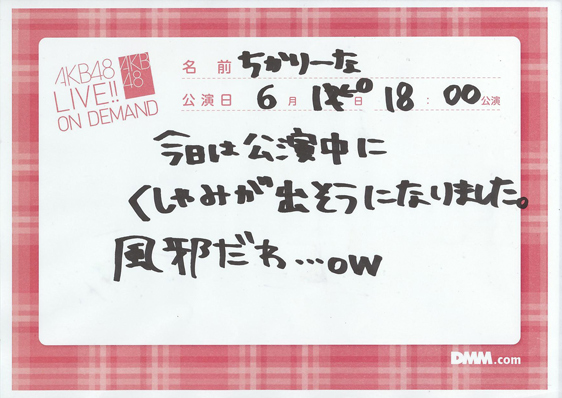 AKB48
LIVE!!
ON DEMAND
AKB
48
名前 ちかりーな
公演日 6月 日 18:00公演
今日は公演中に
くしゃみが出そうになりました。
風邪だわ…ow
DMM.com